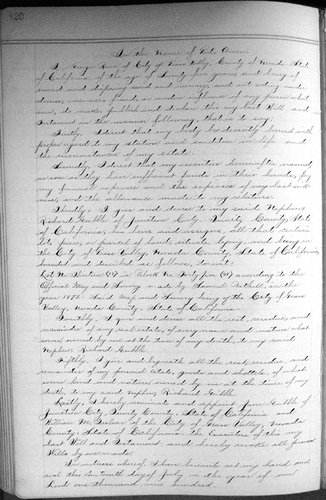 420
In the Name of God, Amen.
I, George Rowe of City of Grass Valley, County of Nevada, State
of California of the age of Seventy five years and being of
sound and disposing mind and memory, and not acting under
duress, menace, fraud, or undue influence of any person what-
ever, do make, publish and declare this my last Will and
Testament in the manner following, that is to say:
Firstly. I direct that my body be decently buried with
proper regard to my station and condition in life and
the circumstances of my estate.
Secondly. I direct that my executors hereinafter named,
as soon as they have sufficient funds in their hands, pay
my funeral expenses and the expenses of my last sick-
ness, and the allowance made to my relatives.
Thirdly. I give and devise to my said Nephew
Richard Gribble of Junction City, Trinity County, State
of California, his heirs and assigns, all that certain
lot, piece, or parcel of land, situate, lying, and being in
the City of Grass Valley, Nevada County, State of California,
bounded and described as follows, to wit:
Lot No in Block No Forty five according to the
Official Map and Survey made by Samuel Bethell, in the
year 1872. Said Map and Survey being of the City of Grass
Valley, Nevada County, State of California.
Fourthly. I give and devise all the rest, residue, and
remainder of my real estate, of every name and nature what-
soever, owned by me at the time of my death, to my said
Nephew, Richard Gribble.
Fifthly. I give and bequeath all the rest, residue, and
remainder of my personal estate, goods and chattels, of what-
ever kind and nature owned by me at the time of my
death, to my said nephew, Richard Gribble.
Lastly. I hereby nominate and appoint Gribble of
Junction City, Trinity County, State of California and
William of the City of Grass Valley, Nevada
County, State of California, the Executors of this my
last Will and Testament, and hereby revoke all former
Wills by me made.
In witness whereof, I have hereunto set my hand and
seal the day of July in the year of our
Lord one thousand nine hundred.